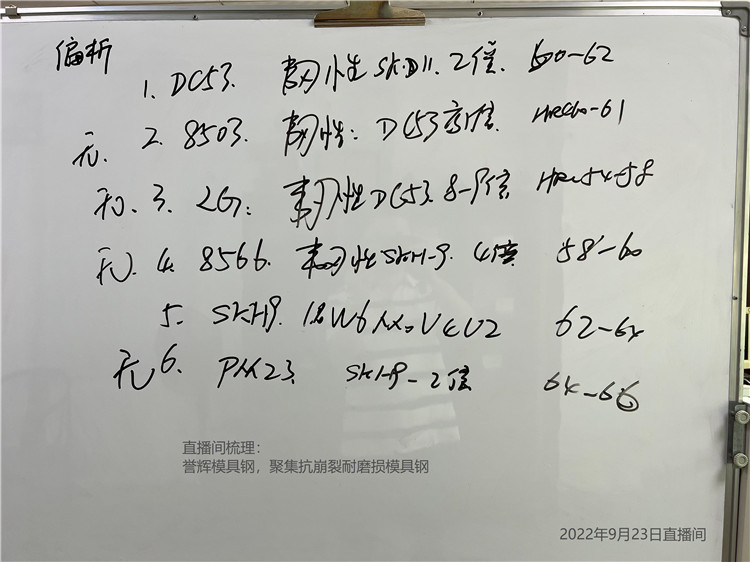 偏析
1. DC53. 韧性SKD11. 2倍. 60-62
无. 2. 8503. 韧性: DC53高1倍. HRC60-61
无. 3. 2G: 韧性DC53. 8-9倍 HRC54-58
无. 4. 8566. 韧性SKH-9. 4倍 58-60
5. SKH9. W6Mo5Cr4V2 62-64
无 6. PM23. SKH9-2倍 64-66
直播间梳理:
誉辉模具钢,聚集抗崩裂耐磨损模具钢
2022年9月23日直播间